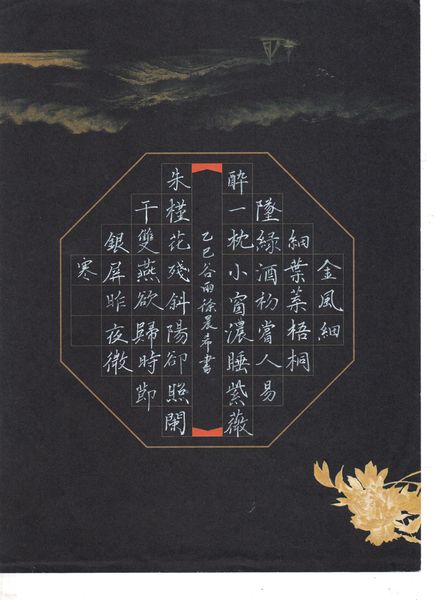 金風細
細葉葉梧桐
墜綠酒初嘗人易
醉一枕小窗濃睡紫薇
乙巳谷雨徐晨希書
朱槿花殘斜陽卻照闌
干雙燕欲歸時即
銀屏昨夜微
寒